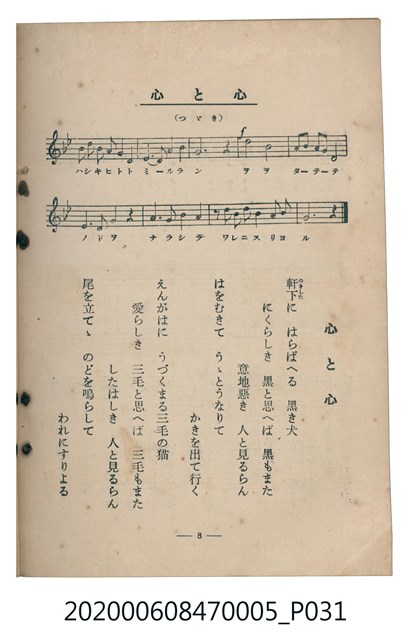 心と心
（つゞき）
f
ハシキヒトト ミールラン ヲヲ ターテーテ
ノドヲ ナラシテ ワレニスリ ヨル
心と心
軒下に はらばへる 黒き犬
のきした
にくらしき 黒と思へば 黒もまた
意地悪き 人と見るらん
はをむきて うゝとうなりて
かきを出て行く
えんがはに うづくまる三毛の猫
愛らしき 三毛と思へば 三毛もまた
したはしき 人と見るらん
尾を立てゝ のどを鳴らして
われにすりよる
— 8 —
202000608470005_P031